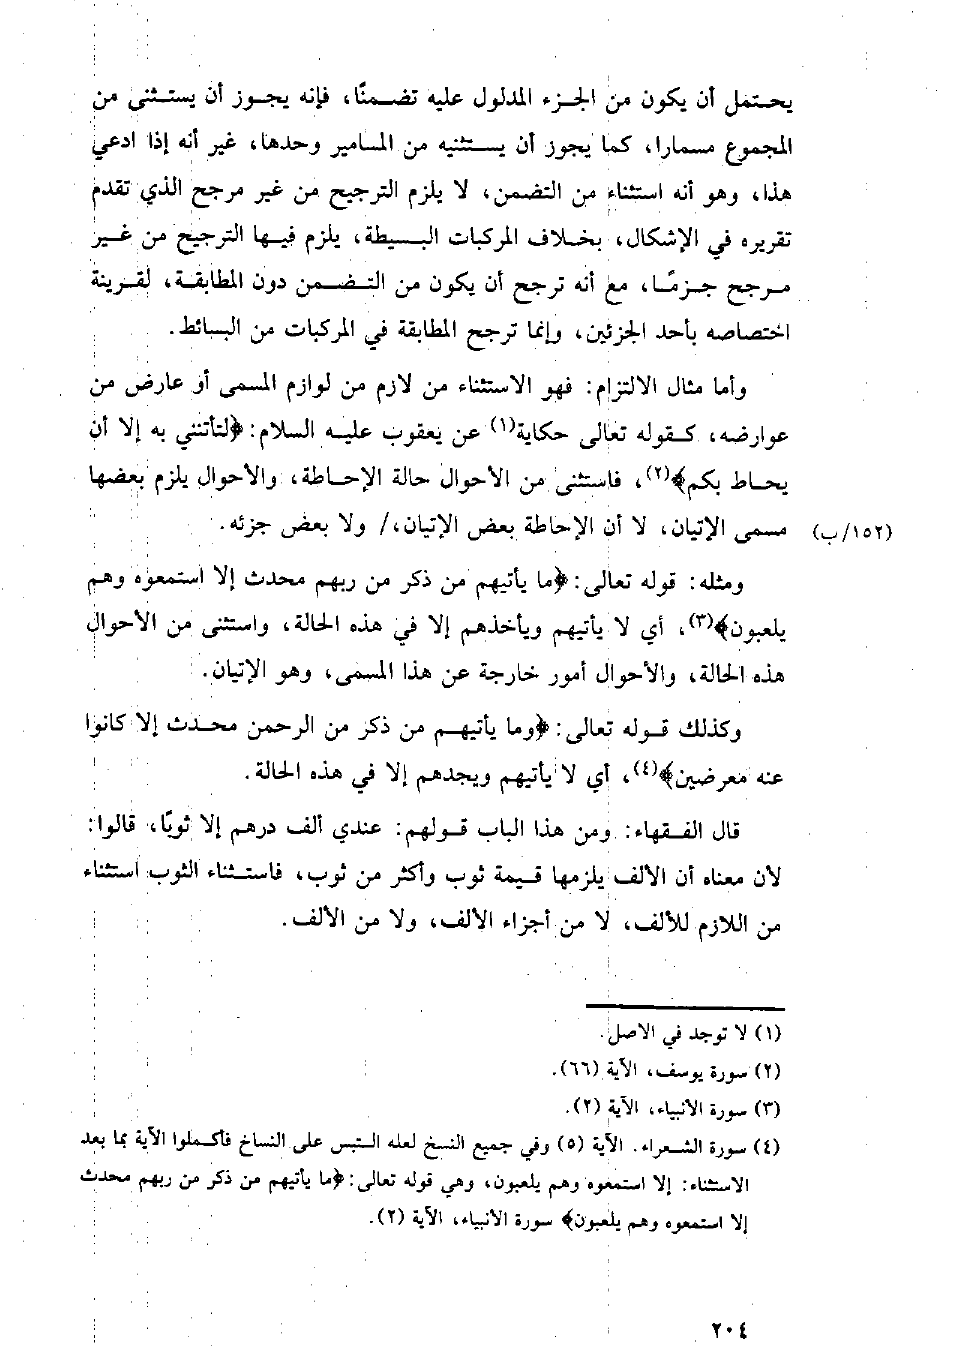 يحتمل أن يكون من الجزء المدلول عليه تضمنًا، فإنه يجوز أن يستثنى من
المجموع مسمارا، كما يجوز أن يستثنيه من المسامير وحدها، غير أنه إذا ادعي
هذا، وهو أنه استثناء من التضمن، لا يلزم الترجيح من غير مرجح الذي تقدم
تقريره في الإشكال، بخلاف المركبات البسيطة، يلزم فيها الترجيح من غير
مرجح جزمًا، مع أنه ترجح أن يكون من التضمن دون المطابقة، لقرينة
اختصاصه بأحد الجزئين، وإنما ترجح المطابقة في المركبات من البسائط.
وأما مثال الالتزام: فهو الاستثناء من لازم من لوازم المسمى أو عارض من
عوارضه، كقوله تعالى حكاية(١) عن يعقوب عليه السلام: ﴿لتأتنني به إلا أن
يحاط بكم﴾(٢)، فاستثنى من الأحوال حالة الإحاطة، والأحوال يلزم بعضها
مسمى الإتيان، لا أن الإحاطة بعض الإتيان،/ ولا بعض جزئه. (١٥٢/ب)
ومثله: قوله تعالى: ﴿ما يأتيهم من ذكر من ربهم محدث إلا استمعوه وهم
يلعبون﴾(٣)، أي لا يأتيهم ويأخذهم إلا في هذه الحالة، واستثنى من الأحوال
هذه الحالة، والأحوال أمور خارجة عن هذا المسمى، وهو الإتيان.
وكذلك قوله تعالى: ﴿وما يأتيهم من ذكر من الرحمن محدث إلا كانوا
عنه معرضين﴾(٤)، أي لا يأتيهم ويجدهم إلا في هذه الحالة.
قال الفقهاء: ومن هذا الباب قولهم: عندي ألف درهم إلا ثوبًا، قالوا:
لأن معناه أن الألف يلزمها قيمة ثوب وأكثر من ثوب، فاستثناء الثوب استثناء
من اللازم للألف، لا من أجزاء الألف، ولا من الألف.
(١) لا توجد في الاصل.
(٢) سورة يوسف، الآية (٦٦).
(٣) سورة الأنبياء، الآية (٢).
(٤) سورة الشعراء. الآية (٥) وفي جميع النسخ لعله التبس على النساخ فأكملوا الآية بما بعد
الاستثناء: إلا استمعوه وهم يلعبون، وهي قوله تعالى: ﴿ما يأتيهم من ذكر من ربهم محدث
إلا استمعوه وهم يلعبون﴾ سورة الأنبياء، الآية (٢).
٢٠٤